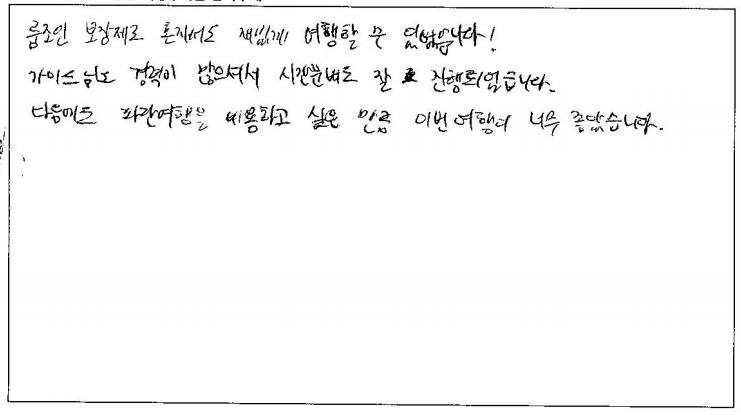 룸조인 보장제로 혼자서도 재밌게 여행할 수 있었습니다!
가이드님도 경력이 많으셔서 시간분배도 잘 진행되었습니다.
다음에도 파란여행을 이용하고 싶은 만큼 이번 여행이 너무 좋았습니다.